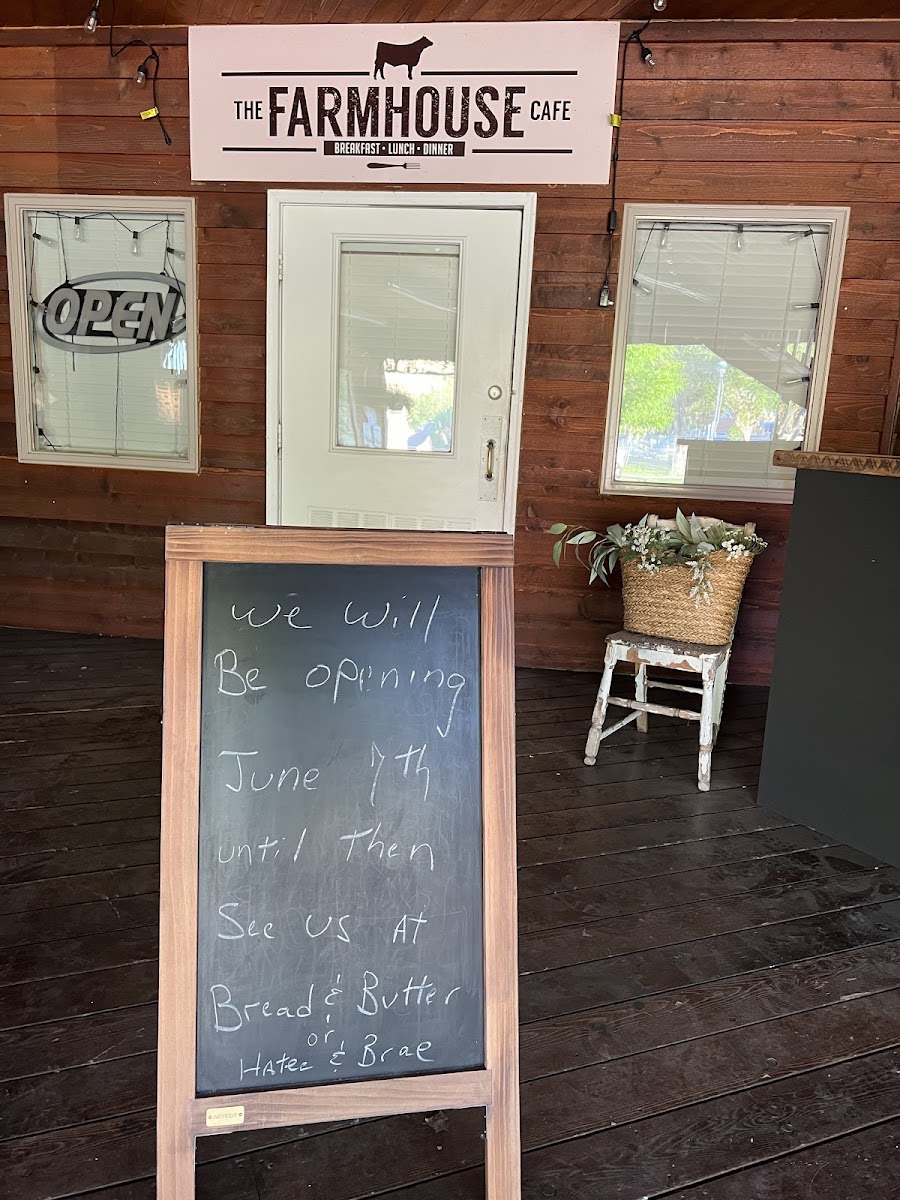 THE FARMHOUSE CAFE
BREAKFAST • LUNCH • DINNER
OPEN
We Will
Be opening
June 7th
until Then
See US At
Bread & Butter
or
& Brae